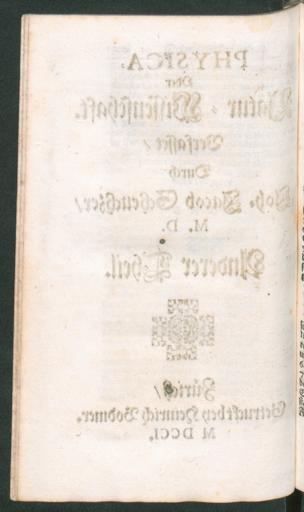 PHYSICA,
Oder
Natur-Wissenschaft.
Verfasset /
Durch
Joh. Jacob Scheuchzer /
M. D.
Anderer Theil.
Zürich /
Getruckt bey Heinrich Bodmer.
M DCCI.